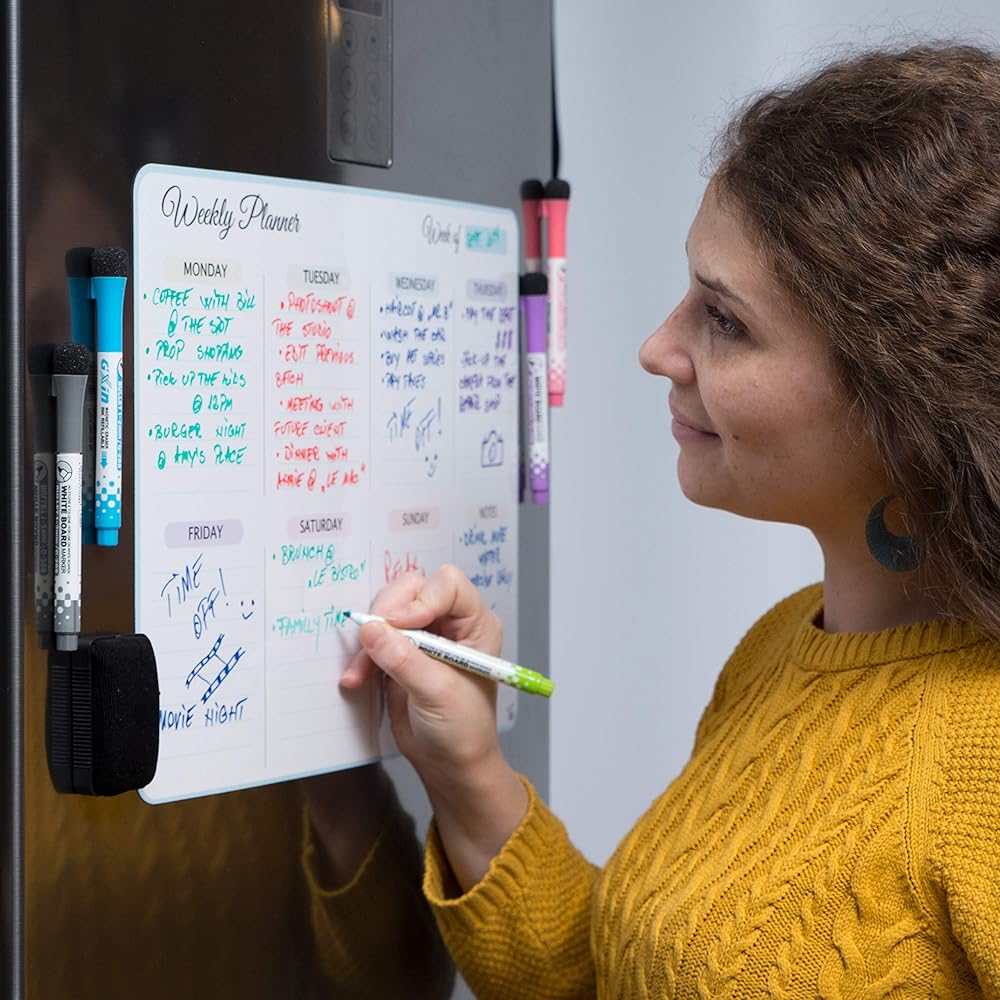 Weekly Planner
Week of
MONDAY
• COFFEE WITH BILL
@ THE SPOT
• PROP SHOPPING
• PICK UP THE KIDS
@ 12PM
• BURGER NIGHT
@ AMY'S PLACE
TUESDAY
• PHOTOSHOOT @
THE STUDIO
• EDIT PREVIOUS
BATCH
• MEETING WITH
FUTURE CLIENT
• DINNER WITH
@ "LE
WEDNESDAY
• HAIRCUT @
• WASH THE CAR
• BUY
• PAY TAXES
TIME
OFF!
THURSDAY
• PAY THE
$$$
• PICK-UP THE
FROM THE
FRIDAY
TIME
OFF!
MOVIE NIGHT
SATURDAY
• BRUNCH @
"LE BISTRO"
• FAMILY TIME
SUNDAY
NOTES
• DRINK MORE
WATER
GXin
MAGNETIC ERASER
INK REFILLABLE
WHITE BOARD
MARKER
WHITE BOARD